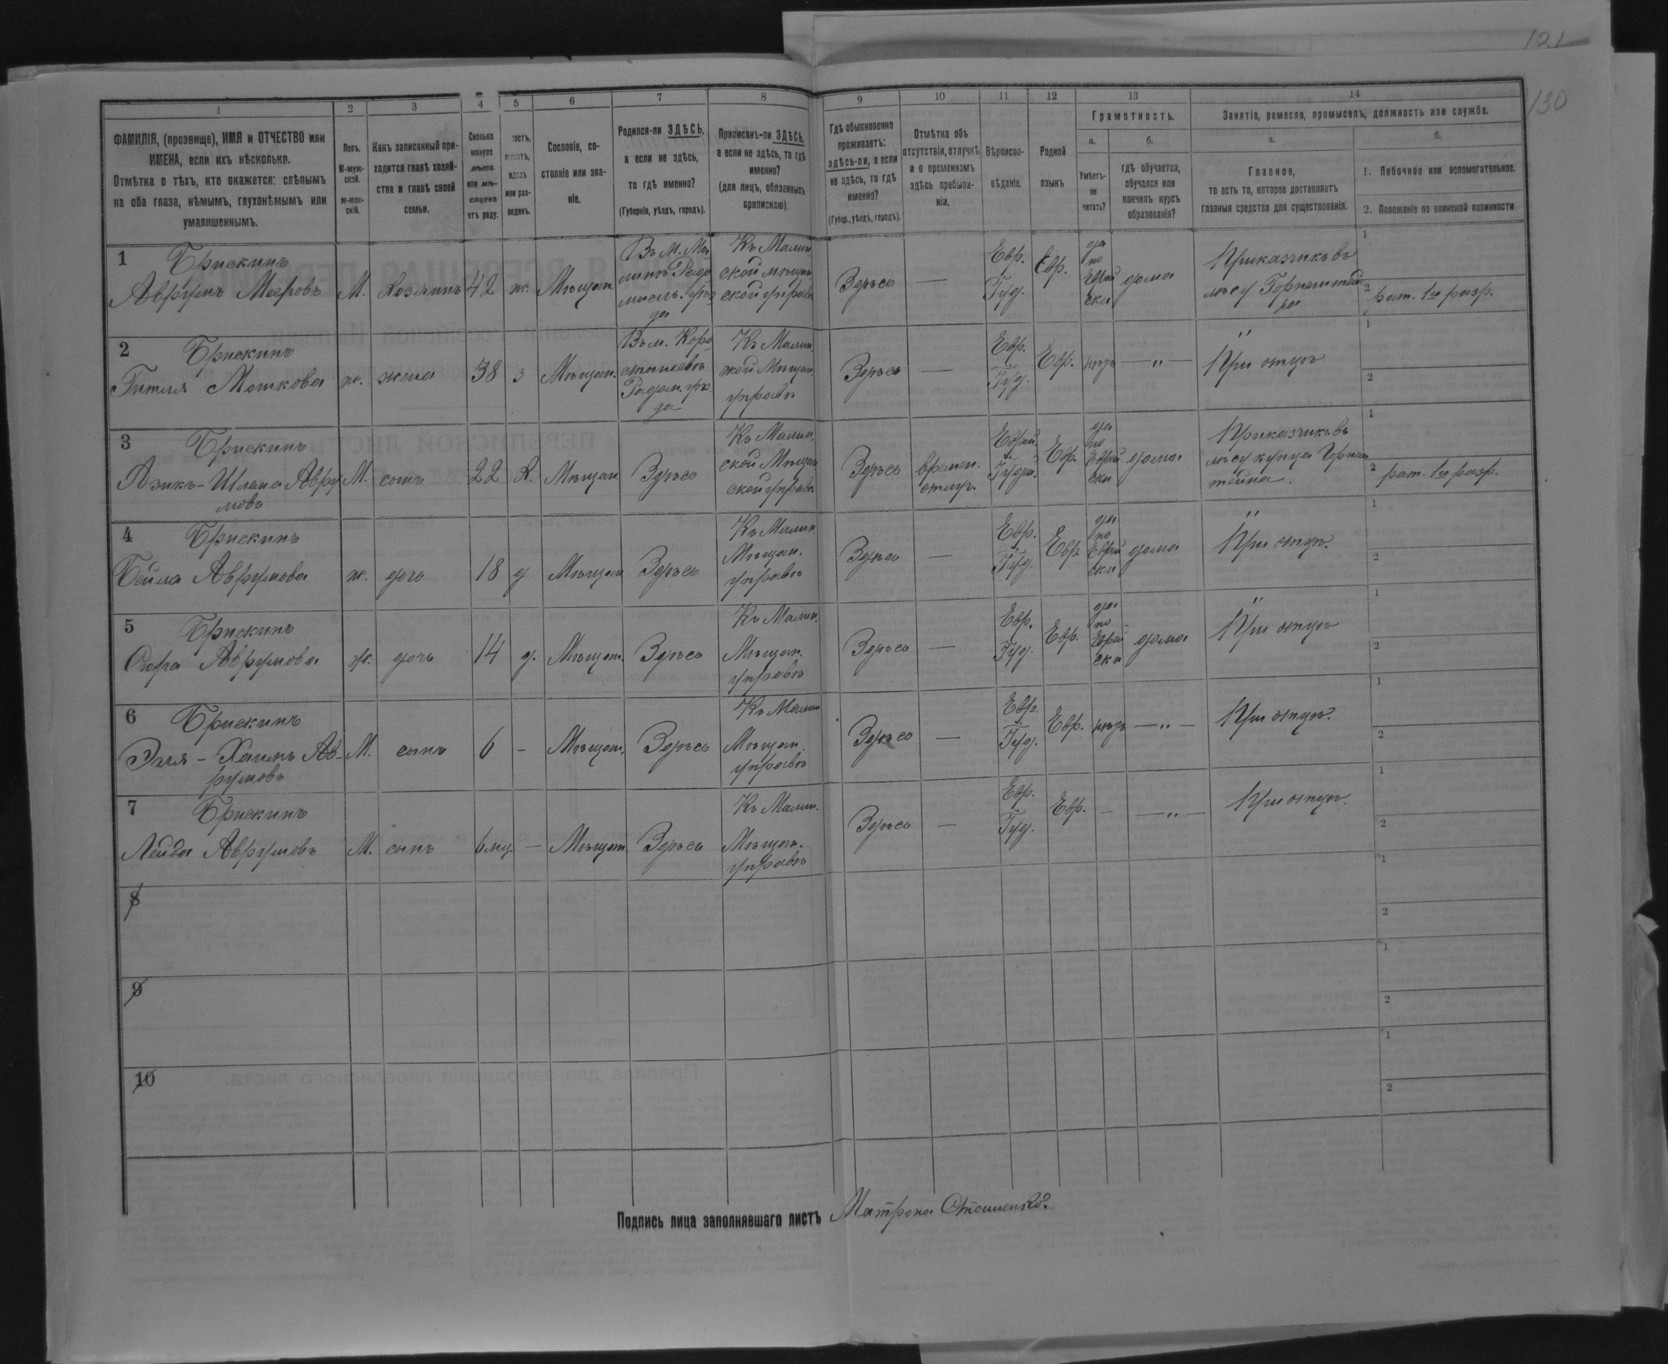 121
130
1
2
3
4
5
6
7
8
9
10
11
12
13
14
ФАМИЛІЯ, (прозвище), ИМЯ и ОТЧЕСТВО или
ИМЕНА, если ихъ нѣсколько.
Отмѣтка о тѣхъ, кто окажется: слѣпымъ
на оба глаза, нѣмымъ, глухонѣмымъ или
умалишеннымъ.
Полъ.
М-муж-
ской.
Ж-жен-
скій.
Какъ записанный при-
ходится главѣ хозяй-
ства и главѣ своей
семьи.
Сколько
минуло
лѣтъ
или мѣ-
сяцевъ
отъ роду.
или раз-
веденъ.
Сословіе, со-
стояніе или зва-
ніе.
Родился-ли ЗДѢСЬ,
а если не здѣсь,
то гдѣ именно?
(Губернія, уѣздъ, городъ).
Приписанъ-ли ЗДѢСЬ,
а если не здѣсь, то гдѣ
именно?
(для лицъ, обязанныхъ
припискою).
Гдѣ обыкновенно
проживаетъ:
здѣсь-ли, а если
не здѣсь, то гдѣ
именно?
(Губер., уѣздъ, городъ).
Отмѣтка объ
отсутствіи, отлучкѣ
и о временномъ
здѣсь пребыва-
ніи.
Вѣроиспо-
вѣданіе.
Родной
языкъ.
Грамотность.
а.
Умѣетъ-
ли
читать?
б.
гдѣ обучается,
обучался или
кончилъ курсъ
образованія?
Занятіе, ремесло, промыселъ, должность или служба.
а.
Главное,
то есть то, которое доставляетъ
главныя средства для существованія.
б.
1. Побочное или вспомогательное.
2. Положеніе по воинской повинности.
1 Брискинъ
Аврумъ Мееровъ М. Хозяинъ 42 ж. Мѣщан.
Въ м. Ма
линѣ Радо
мысль. уѣз
да
Къ Малин
ской мѣщан
ской управѣ
Здѣсь — Евр. Іуд. Евр.
да
по
Еврей
ски
дома
Приказчикъ въ
лѣсу Горнштей
на
1
2 рат. 1го разр.
2 Брискинъ
Гитля Мошкова ж. жена 38 з Мѣщан.
Въ м. Коро
стышевѣ
Радом. уѣз
да
Къ Малин.
ской Мѣщан
управѣ
Здѣсь — Евр. Іуд. Евр. нѣтъ — " —
При отцѣ
1
2
3 Брискинъ
Азикъ-Шлема Авру
мовъ
М. сынъ 22 Х. Мѣщан Здѣсь
Къ Малин.
ской Мѣщан
ской управѣ
Здѣсь
времен.
отлуч.
Еврей. Іудей. Евр.
да
по
Еврей
ски
дома
Приказчикъ въ
лѣсу купца Горнш
тейна.
1
2 рат. 1го разр.
4 Брискинъ
Бейла Аврумова ж. дочь 18 д Мѣщан Здѣсь
Къ Малин.
Мѣщан.
управѣ
Здѣсь — Евр. Іуд. Евр.
да
по
Еврей
ски
дома
При отцѣ.
1
2
5 Брискинъ
Сюра Аврумова ж. дочь 14 д. Мѣщан. Здѣсь
Къ Малин.
Мѣщан.
управѣ
Здѣсь — Евр. Іуд. Евр.
да
по
Еврей
ски
дома
При отцѣ
1
2
6 Брискинъ
Эля - Хаимъ Ав-
румовъ
М. сынъ 6 - Мѣщан. Здѣсь
Къ Малин
Мѣщан.
управѣ
Здѣсь — Евр. Іуд. Евр. нѣтъ — " —
При отцѣ.
1
2
7 Брискинъ
Лейба Аврумовъ М. сынъ 6 мц. — Мѣщан. Здѣсь
Къ Малин.
Мѣщан.
управѣ
Здѣсь — Евр. Іуд. Евр. — — " —
При отцѣ.
1
2
8
1
2
9
1
2
10
1
2
Подпись лица заполнявшаго листъ Матрона